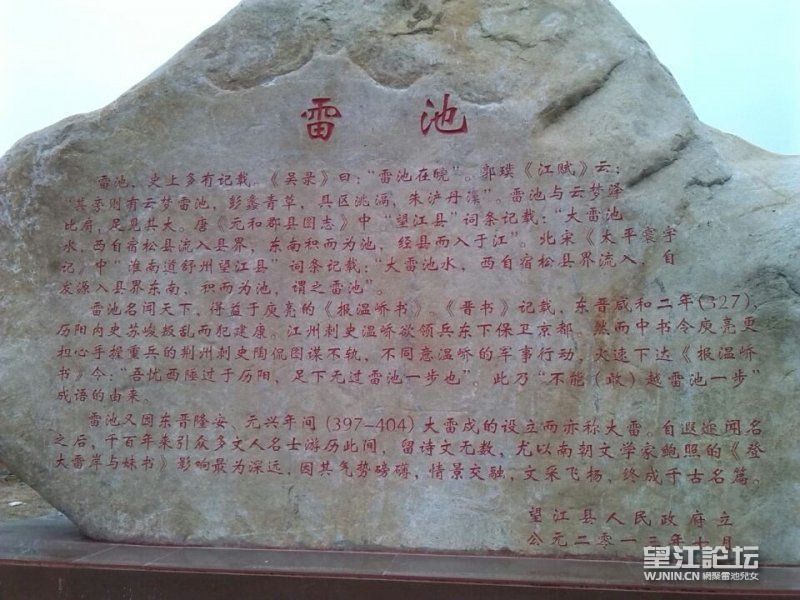 雷池
雷池，史上多有记载。《吴录》曰："雷池在皖"。郭璞《江赋》云：
"其旁则有云梦雷池，彭蠡青草，具区洮滆，朱浐丹漅"。雷池与云梦泽
比肩，足见其大。唐《元和郡县图志》中"望江县"词条记载："大雷池
水，西自宿松县流入县界，东南积而为池，经县而入于江"。北宋《太平寰宇
记》中"淮南道舒州望江县"词条记载："大雷池水，西自宿松县界流入，自
发源入县界东南，积而为池，谓之雷池"。
雷池名闻天下，得益于庾亮的《报温峤书》。《晋书》记载，东晋咸和二年(327)，
历阳内史苏峻叛乱而犯建康。江州刺史温峤欲领兵东下保卫京都。然而中书令庾亮更
担心手握重兵的荆州刺史陶侃图谋不轨，不同意温峤的军事行动，火速下达《报温峤
书》令："吾忧西陲过于历阳，足下无过雷池一步也"。此乃"不能(敢)越雷池一步"
成语的由来。
雷池又因东晋隆安、元兴年间(397-404)大雷戍的设立而亦称大雷。自遐迩闻名
之后，千百年来引众多文人名士游历此间，留诗文无数，尤以南朝文学家鲍照的《登
大雷岸与妹书》影响最为深远，因其气势磅礴，情景交融，文采飞扬，终成千古名篇。
望江县人民政府立
公元二零一三年十月
望江論坛
WJNIN.CN 網聚雷池兒女